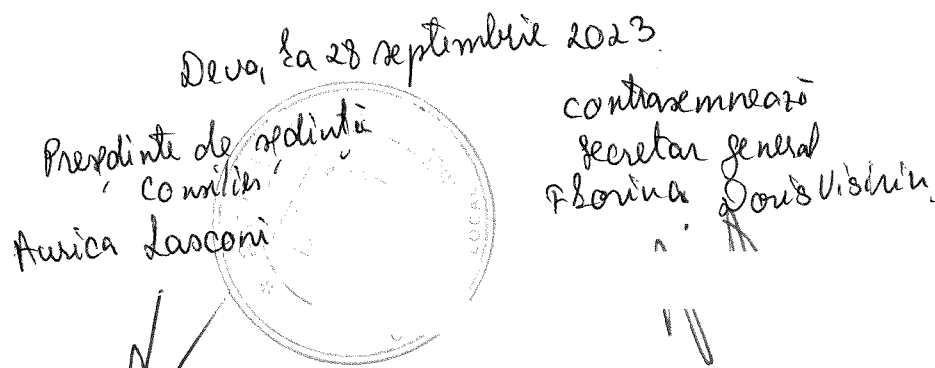 Deva, la 28 septembrie 2023
Președinte de ședință
consilier
Aurica Lasconi
contrasemnează
secretar general
Florina Doris Visirin
LOCAL